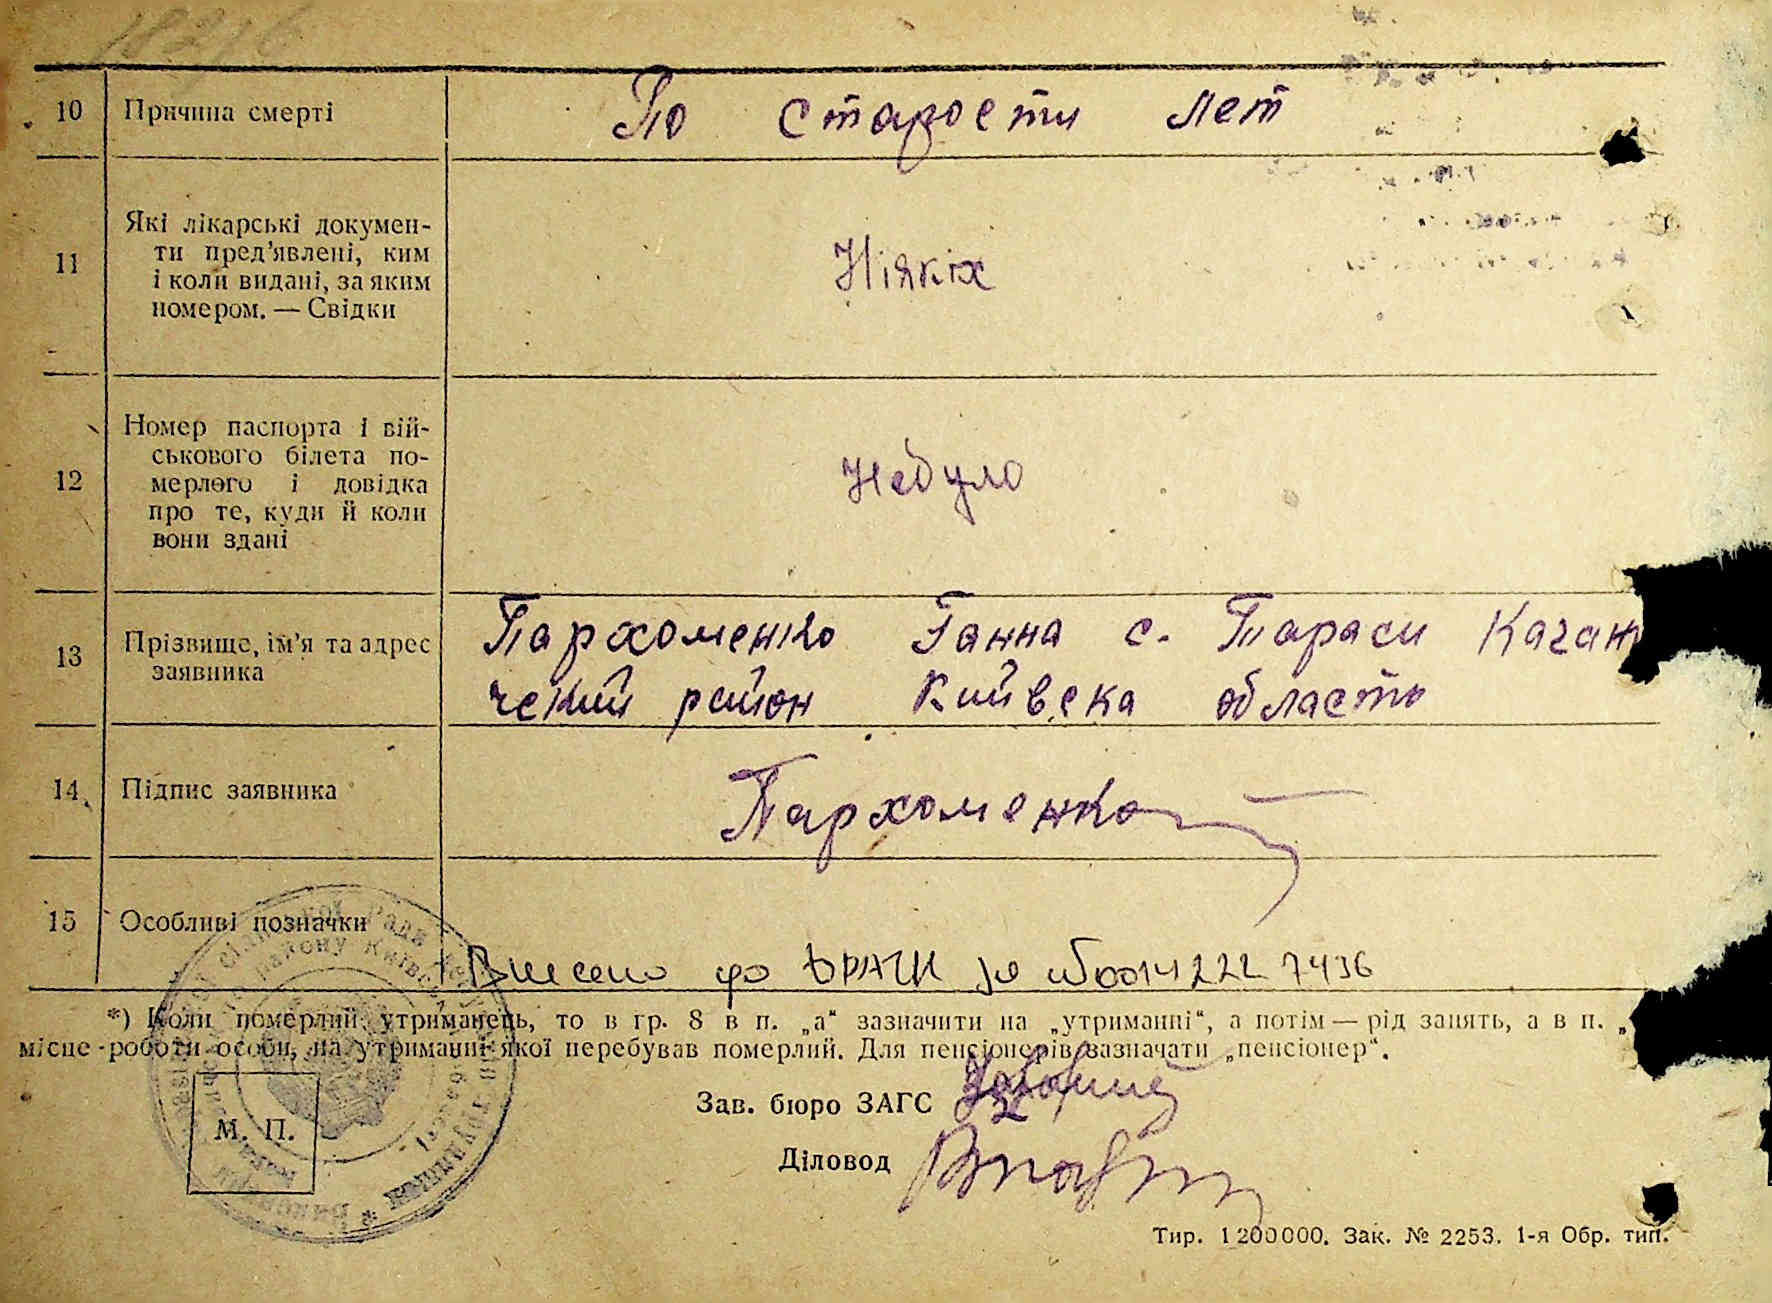 18276
10 Причина смерті По старости лет
11 Які лікарські докумен-
ти пред’явлені, ким
і коли видані, за яким
номером. — Свідки
Ніякіх
12 Номер паспорта і вій-
ськового білета по-
мерлого і довідка
про те, куди й коли
вони здані
Небуло
13 Прізвище, ім’я та адрес
заявника
Пархоменко Ганна с. Тараси Каган
чский район Київска область
14 Підпис заявника Пархоменко
15 Особливі позначки
Внесено до ДРАЦС за №00142227436
*) Коли померлий утриманець, то в гр. 8 в п. „а“ зазначити на „утриманні“, а потім — рід занять, а в п. „
місце роботи особи, на утриманні якої перебував померлий. Для пенсіонерів зазначати „пенсіонер“.
Зав. бюро ЗАГС
М. П.
Діловод
Тир. 1200000. Зак. № 2253. 1-я Обр. тип.